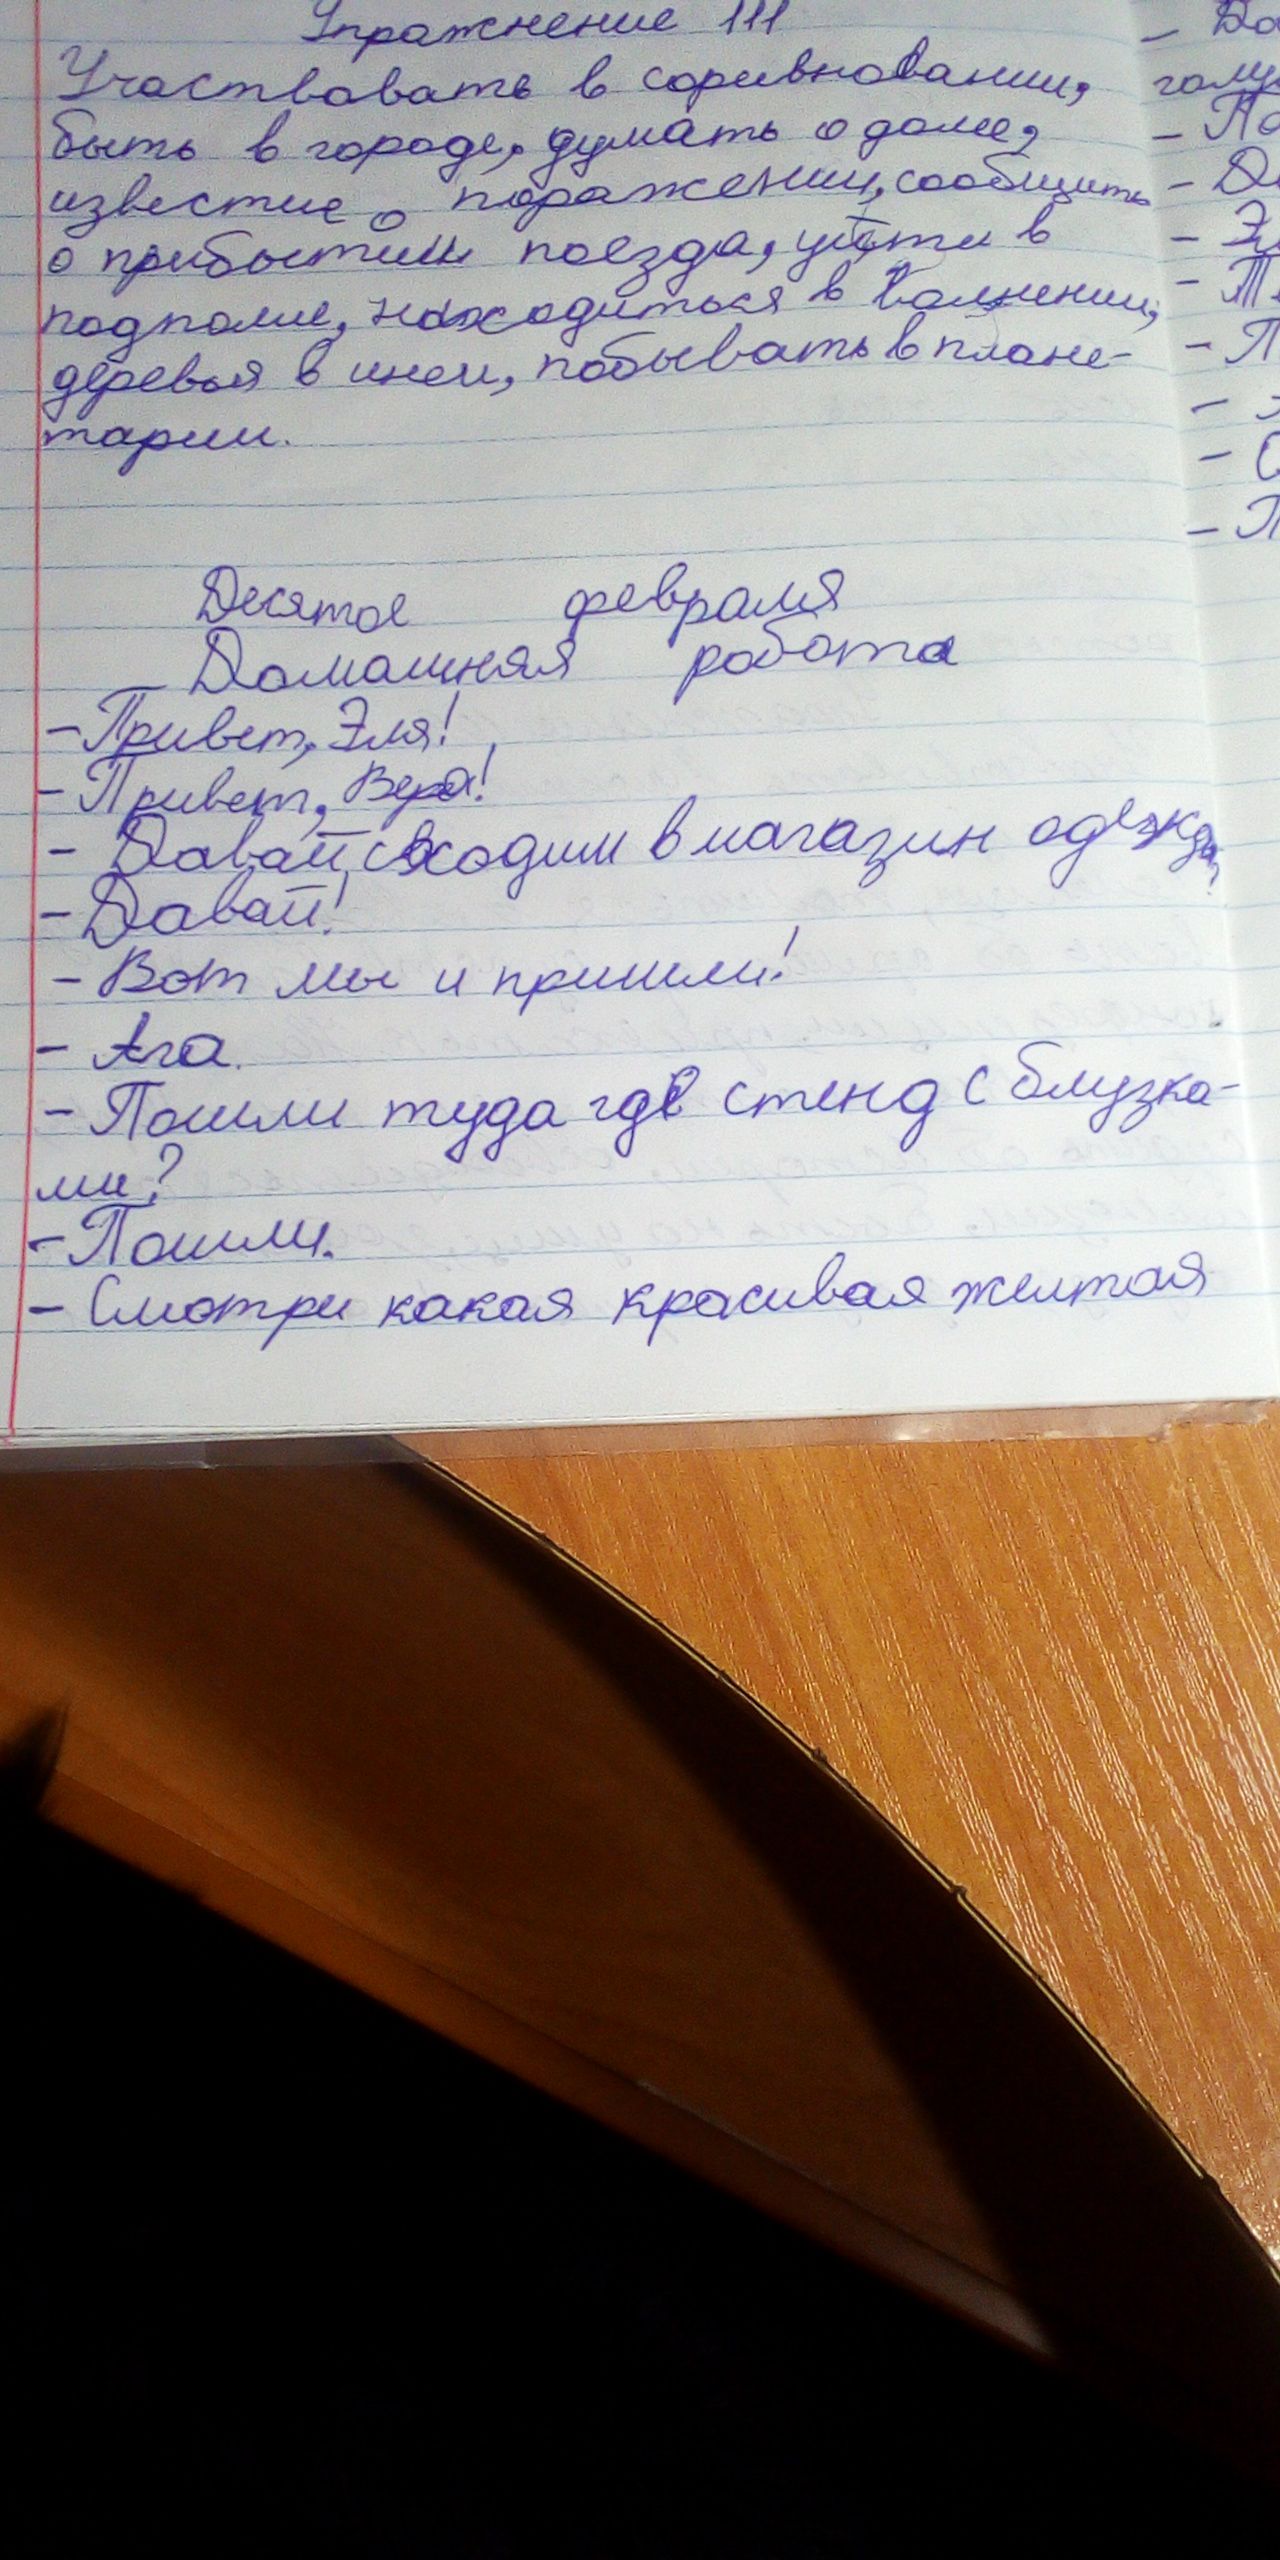 Упражнение 111
Участвовать в соривновании,
быть в городе, думать о доме,
известие о поражении, сообщить
о прибытии поезда, уйти в
подполие, находиться в волнении,
деревья в инеи, побывать в плане-
тарии.
Десятое февраля
Домашняя работа
- Привет, Эля!
- Привет, Вера!
- Давай сходим в магазин одежды?
- Давай!
- Вот мы и пришли!
- Ага.
- Пошли туда где стенд с блузка-
ми?
- Пошли.
- Смотри какая красивая желтая